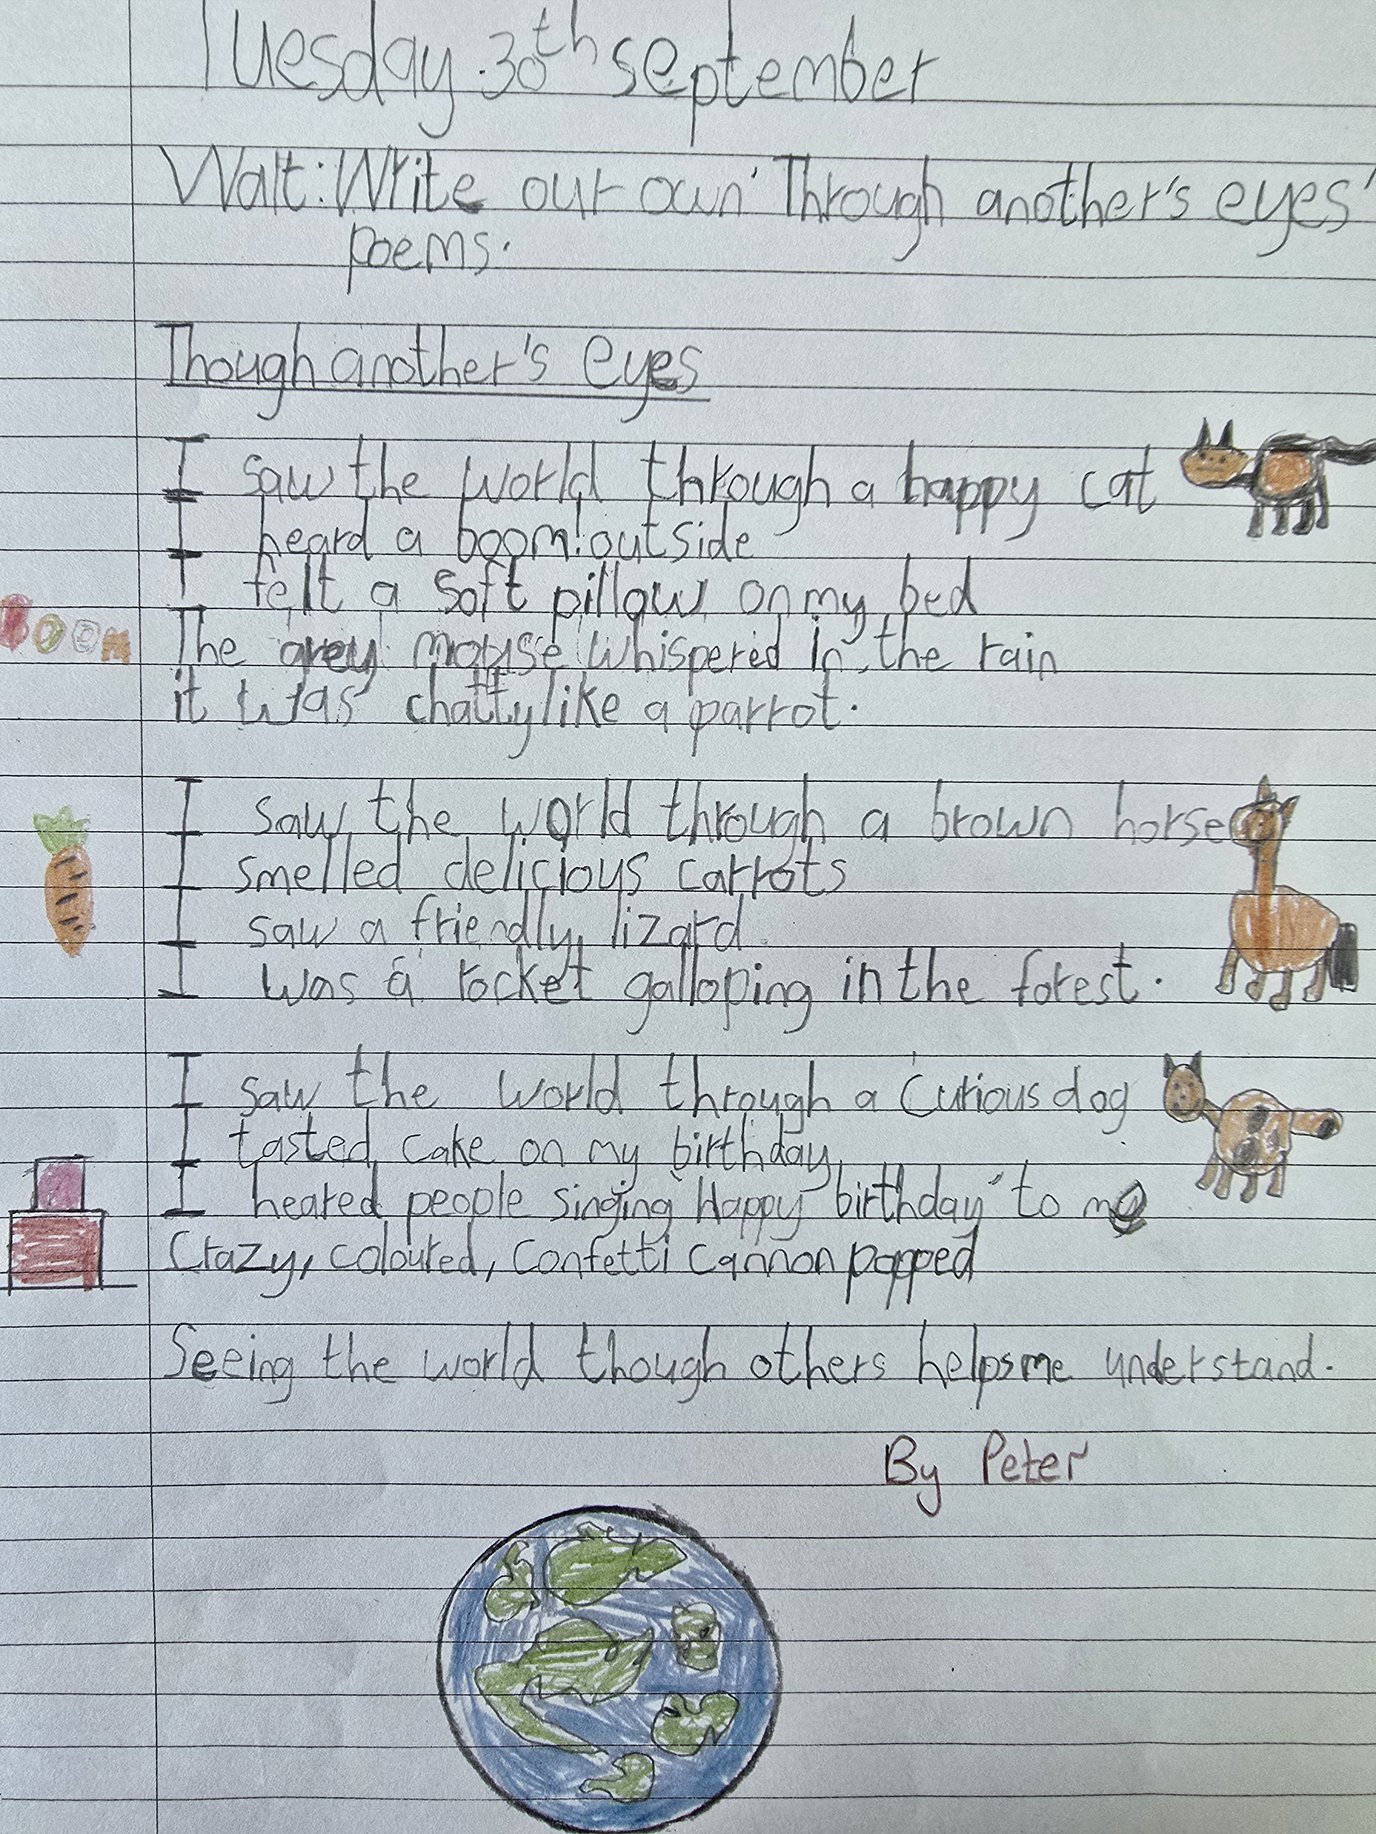 Tuesday.30th september
Walt: Write our own 'Through another's eyes'
poems.
Though another's eyes
I saw the world through a happy cat
I heard a boom! outside
I felt a soft pillow on my bed
BOOM
The grey mouse whispered in the rain
it was chatty like a parrot.
I saw the world through a brown horse
I smelled delicious carrots
I saw a friendly lizard
I was a rocket galloping in the forest.
I saw the world through a curious dog
I tasted cake on my birthday
I heared people singing 'Happy birthday' to me
Crazy, coloured, confetti cannon popped
Seeing the world though others helps me understand.
By Peter